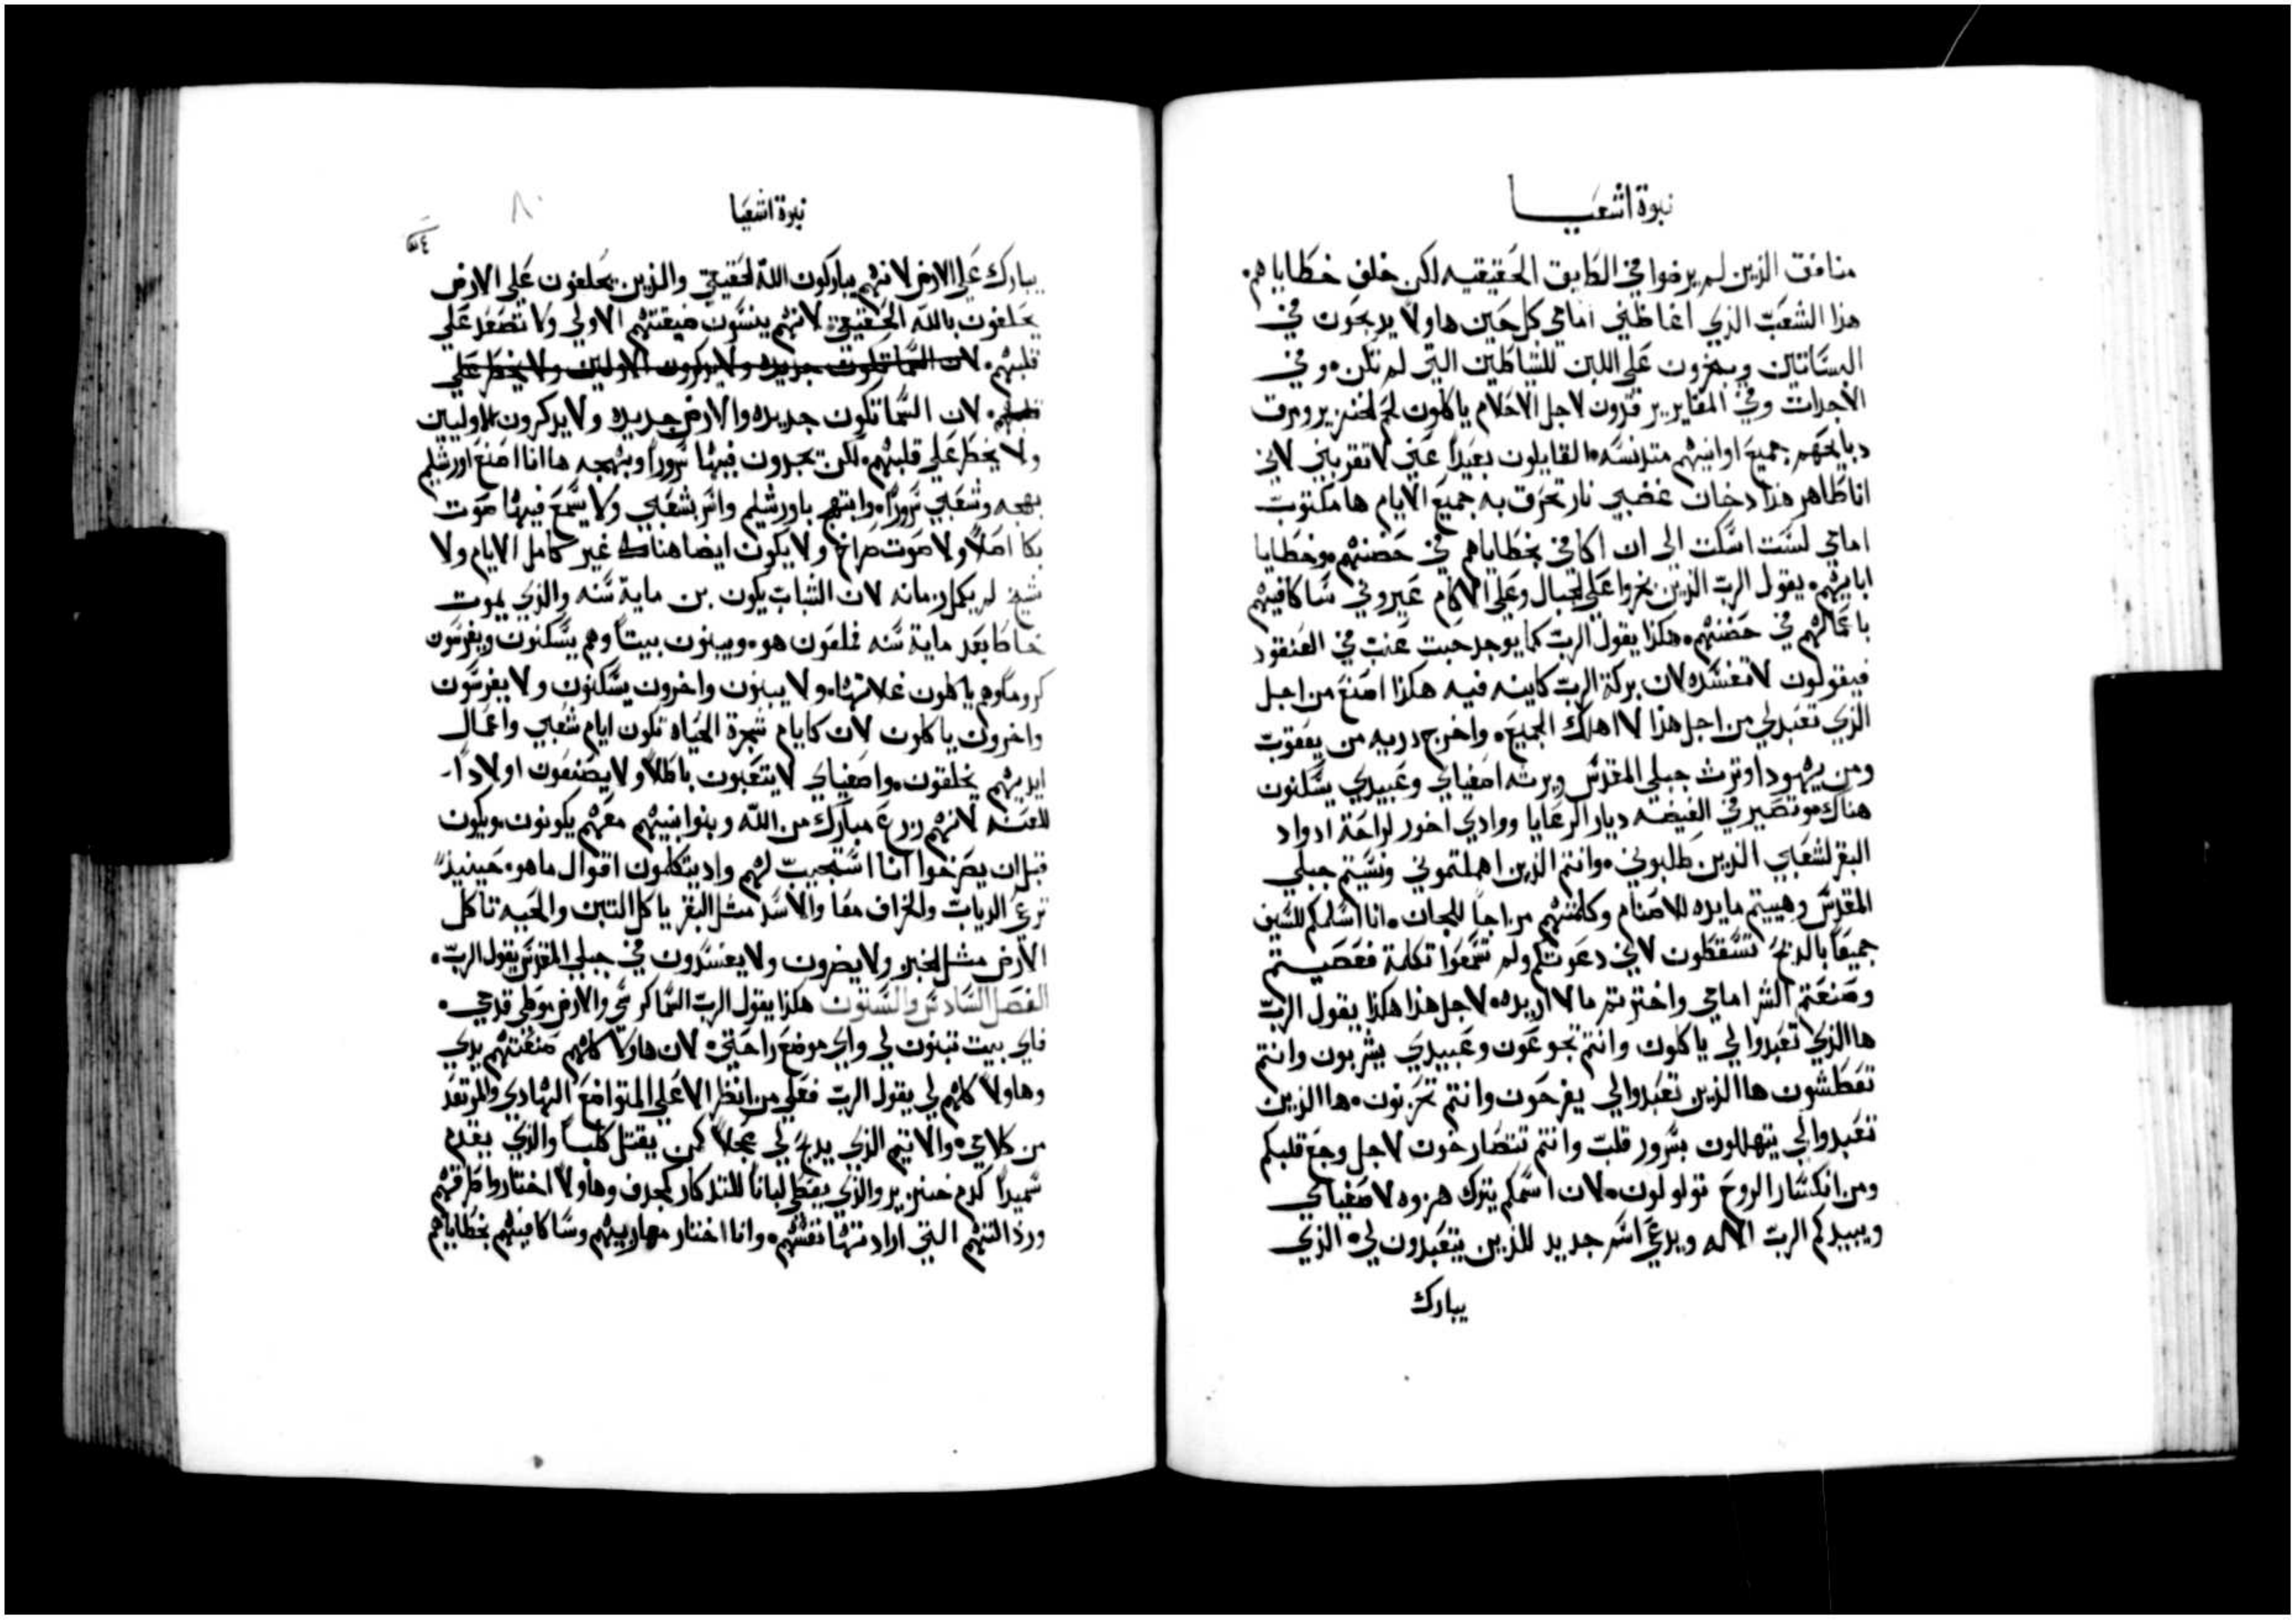 نبوة اشعيا
منافق الذين لم يرضوا في الطريق الحقيقيه لكن خلف خطاياهم٠
هذا الشعب الذي اغاظني امامي كل حين هاولا يدبحون في
البساتين ويبخرون على اللبن للشياطين التي لم تكن٠ وفي
الاجداث وفي المقاير يرقدون لاجل الاحلام ياكلون لحم الخنزير ومرق
دبايحهم جميع اوانيهم متدنسه٠ القايلون بعيداً عني لا تقربني لاني
انا طاهر هذا دخان غضبي نار تحرق به جميع الايام ها مكتوب
امامي لست اسكت الي ان اكافي بخطاياهم في حضنهم٠ وخطايا
ابايهم٠ يقول الرب الذين بخروا على الجبال وعلى الاكام عيروني ساكافيهم
باعمالهم في حضنهم٠ هكذا يقول الرب كما يوجد حبت عنب في العنقود
فيقولون لا تفسده لان بركة الرب كاينه فيه هكذا اصنع من اجل
الذي تعبد لي من اجل هذا لا اهلك الجميع٠ واخرج دريه من يعقوب
ومن يهودا وترث جبلي المقدس ويرثه اصفياي وعبيدي يسكنون
هناك٠ وتصير في الغيضه ديار الرعايا ووادي اخور لراحة ادواد
البقر لشعبي الذين طلبوني٠ وانتم الذين اهملتموني ونسيتم جبلي
المقدس وهييتم مايده للاصنام وكلمتهم مزاجاً للجان٠ انا اسلمكم للسيف
جميعاً بالذبح تسقطون لاني دعوتكم ولم تسمعوا تكلمة فعصيتم
وصنعتم الشر امامي واخترتم ما لا اريده٠ لاجل هذا هكذا يقول الرب
ها الذي تعبدوا لي ياكلون وانتم تجوعون وعبيدي يشربون وانتم
تعطشون ها الذين تعبدوا لي يفرحون وانتم تحزنون٠ ها الذين
تعبدوا لي يتهللون بسرور قلب وانتم تتصارخون لاجل وجع قلبكم
ومن انكسار الروح تولولون٠ لان اسمكم يترك هزوه لاصفياي
ويبيدكم الرب الاله ويدعي اسم جديد للذين يتعبدون لي٠ الذي
يبارك
نبوة اشعيا
٨٠
يبارك على الارض لانهم يباركون الله الحقيقي والذين يحلفون على الارض
يحلفون بالله الحقيقي٠ لانهم ينسون ضيقتهم الاولي ولا تصعد على
قلبهم٠ لان السما تكون جديده ولا يدكرون الاولين ولا يخطر على
قلبهم٠ لان السما تكون جديده والارض جديده ولا يدكرون الاوليين
ولا يخطر على قلبهم٠ لكن يجدون فيها سروراً وبهجه ها انا اصنع اورشليم
بهجه وشعبي سروراً٠ وابتهج باورشليم واسر بشعبي ولا يسمع فيها صوت
بكا اصلاً ولا صوت صراخ ولا يكون ايضا هناك غير كامل الايام ولا
شيخ لم يكمل زمانه لان الشباب يكون بن ماية سنه والذي يموت
خاطا بعد ماية سنه فملعون هو٠ ويبنون بيتاً وهم يسكنون ويغرسون
كروماً وهم ياكلون غلاتها٠ ولا يبنون واخرون يسكنون ولا يغرسون
واخرون ياكلون لان كايام شجرة الحياه تكون ايام شعبي واعمال
ايديهم يخلقون٠ واصفياي لا يتعبون باطلاً ولا يصنعون اولاداً
للعنه لانهم زرع مبارك من الله وبنوا بنيهم معهم يكونون٠ ويكون
قبل ان يصرخوا انا استجيب لهم واد يتكلمون اقول ما هو٠ حينيذ
ترعي الدياب والخراف معا والاسد مثل البقر ياكل التبن والحيه تاكل
الارض مثل الخبز ولا يضرون ولا يفسدون في جبلي المقدس يقول الرب٠
الفصل السادس والستون هكذا يقول الرب السما كرسي والارض موطى قدمي٠
فاي بيت تبنون لي واي موضع راحتي٠ لان هاولا كلهم صنعتهم يدي
وهاولا كلهم لي يقول الرب فعلى من انظر الا على المتواضع الهادي والمرتعد
من كلامي٠ والاتيم الذي يدبح لي عجلاً كمن يقتل كلباً والذي يقدم
سميداً كدم خنزير والذي يعطى لباناً للتدكار كمجدف وهاولا اختاروا طرقهم
ورذالتهم التي ارادتها نفسهم٠ وانا اختار مهاريهم وساكافيهم بخطاياهم